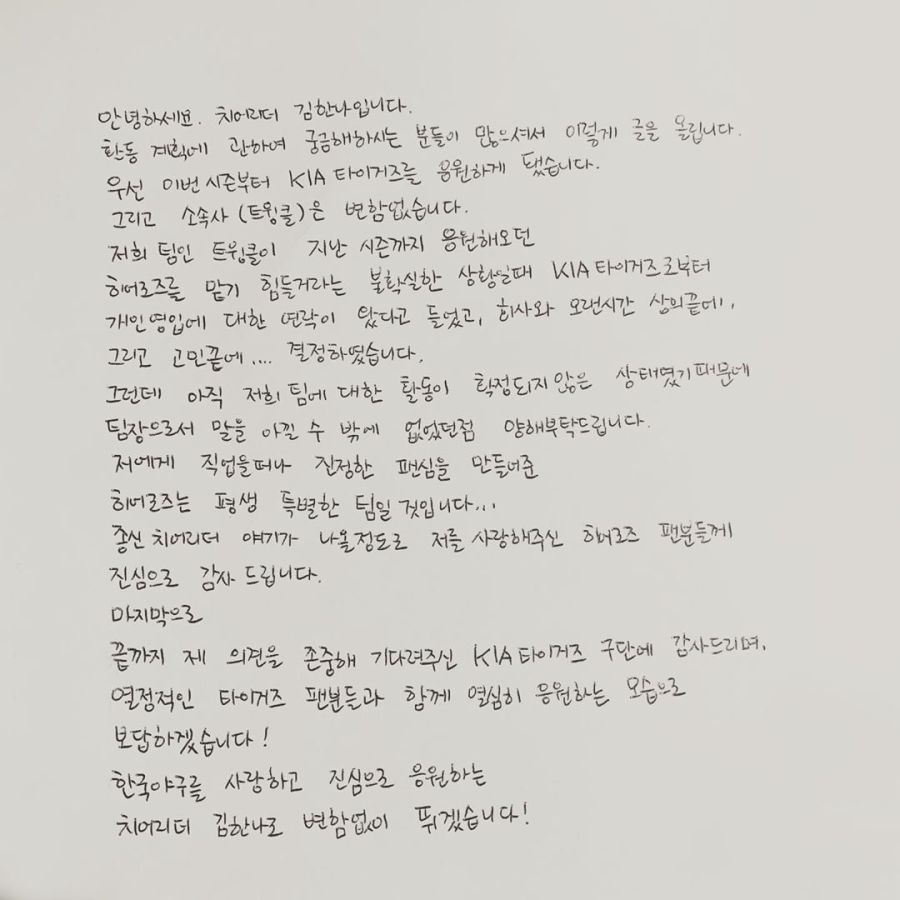 안녕하세요. 치어리더 김한나입니다.
활동 계획에 관하여 궁금해하시는 분들이 많으셔서 이렇게 글을 올립니다.
우선 이번 시즌부터 KIA 타이거즈를 응원하게 됐습니다.
그리고 소속사 (트윙클)은 변함없습니다.
저희 팀인 트윙클이 지난 시즌까지 응원해오던
히어로즈를 맡기 힘들거라는 불확실한 상황일때 KIA 타이거즈로부터
개인영입에 대한 연락이 왔다고 들었고, 회사와 오랜시간 상의끝에,
그리고 고민끝에.... 결정하였습니다.
그런데 아직 저희 팀에 대한 활동이 확정되지 않은 상태였기때문에
팀장으로서 말을 아낄 수 밖에 없었던점 양해부탁드립니다.
저에게 직업을떠나 진정한 팬심을 만들어준
히어로즈는 평생 특별한 팀일 것입니다...
종신 치어리더 얘기가 나올정도로 저를 사랑해주신 히어로즈 팬분들께
진심으로 감사 드립니다.
마지막으로
끝까지 제 의견을 존중해 기다려주신 KIA 타이거즈 구단에 감사드리며,
열정적인 타이거즈 팬분들과 함께 열심히 응원하는 모습으로
보답하겠습니다!
한국야구를 사랑하고 진심으로 응원하는
치어리더 김한나로 변함없이 뛰겠습니다!